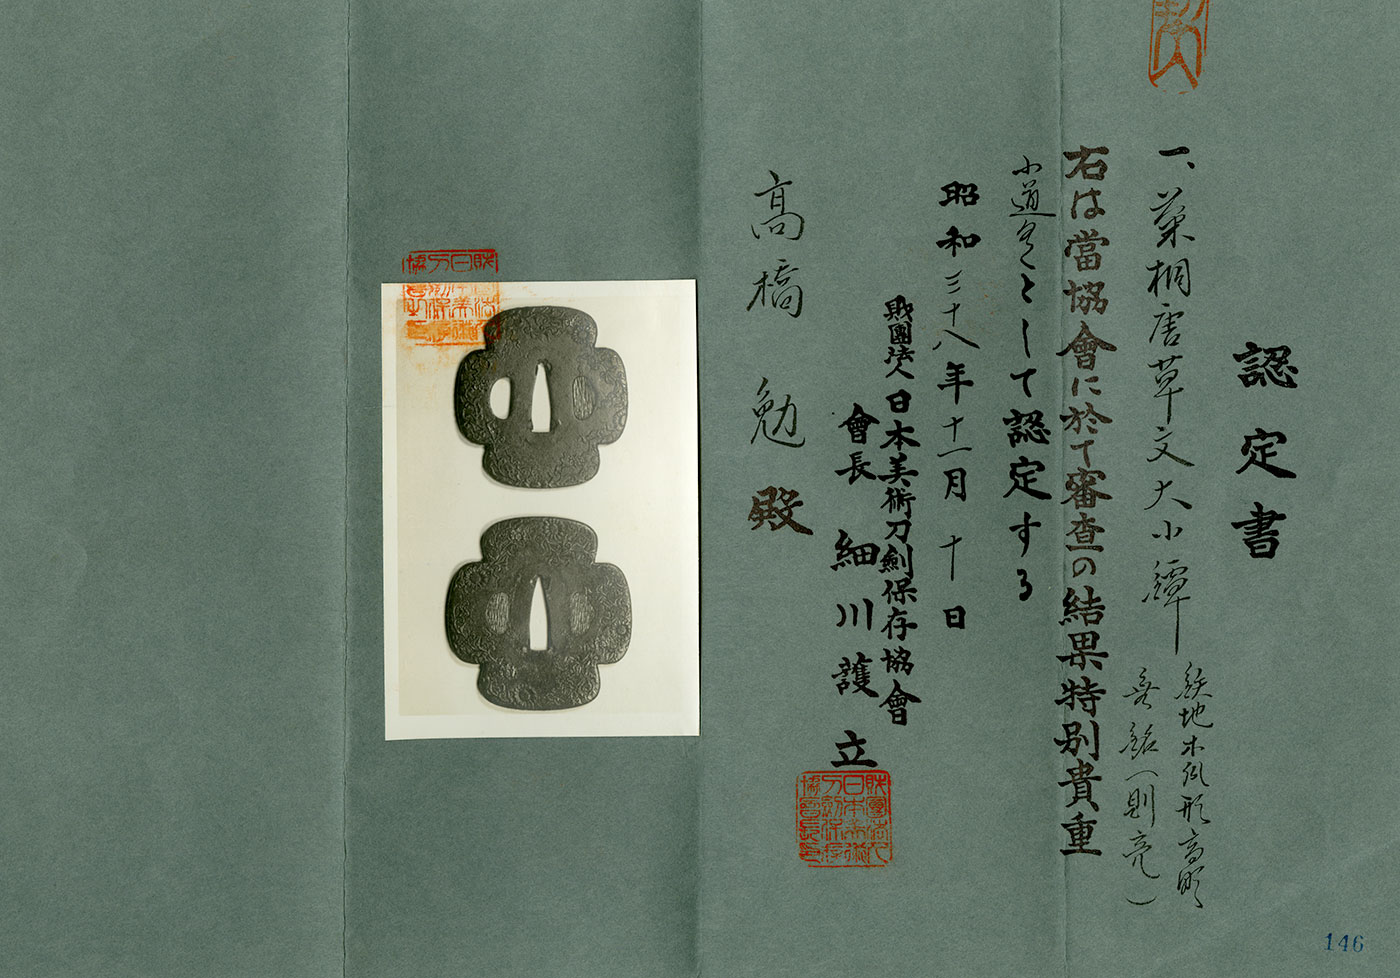 認定書
一、菊桐唐草文大小鐔
鉄地木瓜形高彫
無銘(則亮)
右は當協會に於て審査の結果特別貴重
小道具として認定する
昭和三十八年十一月十日
財團法人日本美術刀劍保存協會
會長 細川護立
高橋勉殿
146